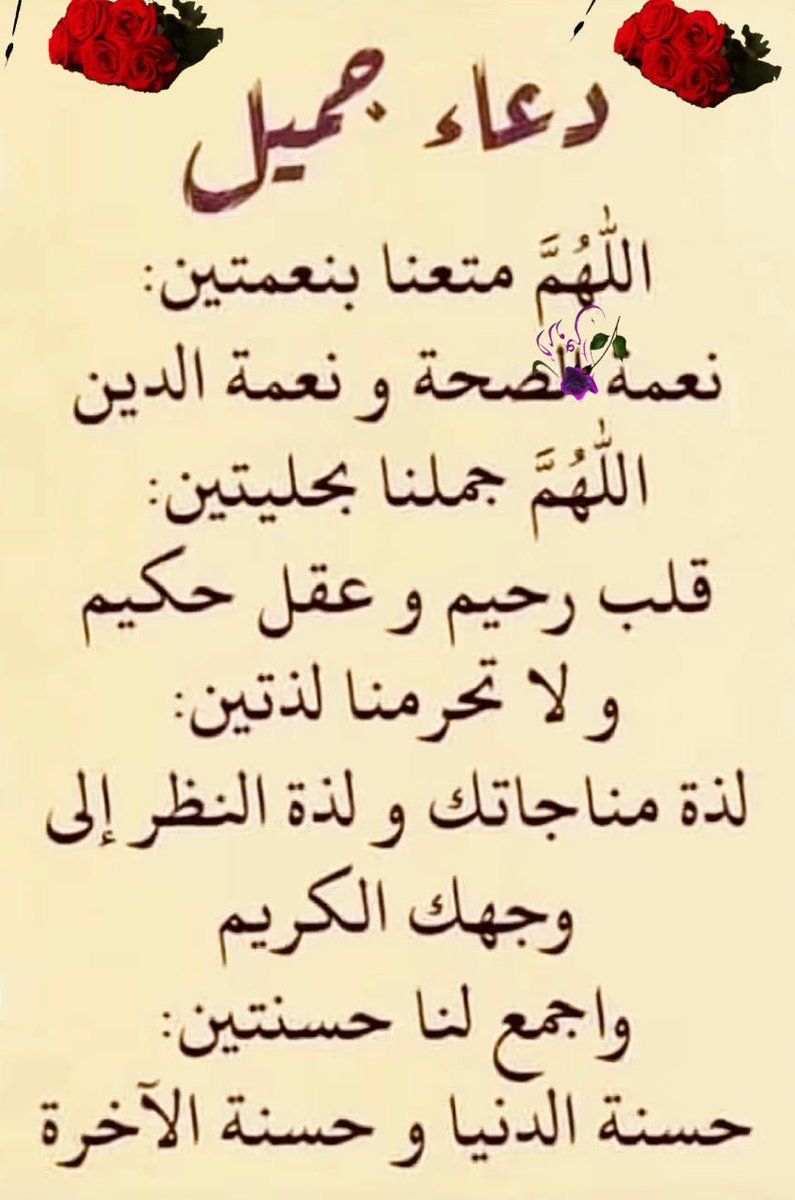 دعاء جميل
اللّٰهُمَّ متعنا بنعمتين:
نعمة الصحة و نعمة الدين
اللّٰهُمَّ جملنا بحليتين:
قلب رحيم و عقل حكيم
و لا تحرمنا لذتين:
لذة مناجاتك و لذة النظر إلى
وجهك الكريم
واجمع لنا حسنتين:
حسنة الدنيا و حسنة الآخرة